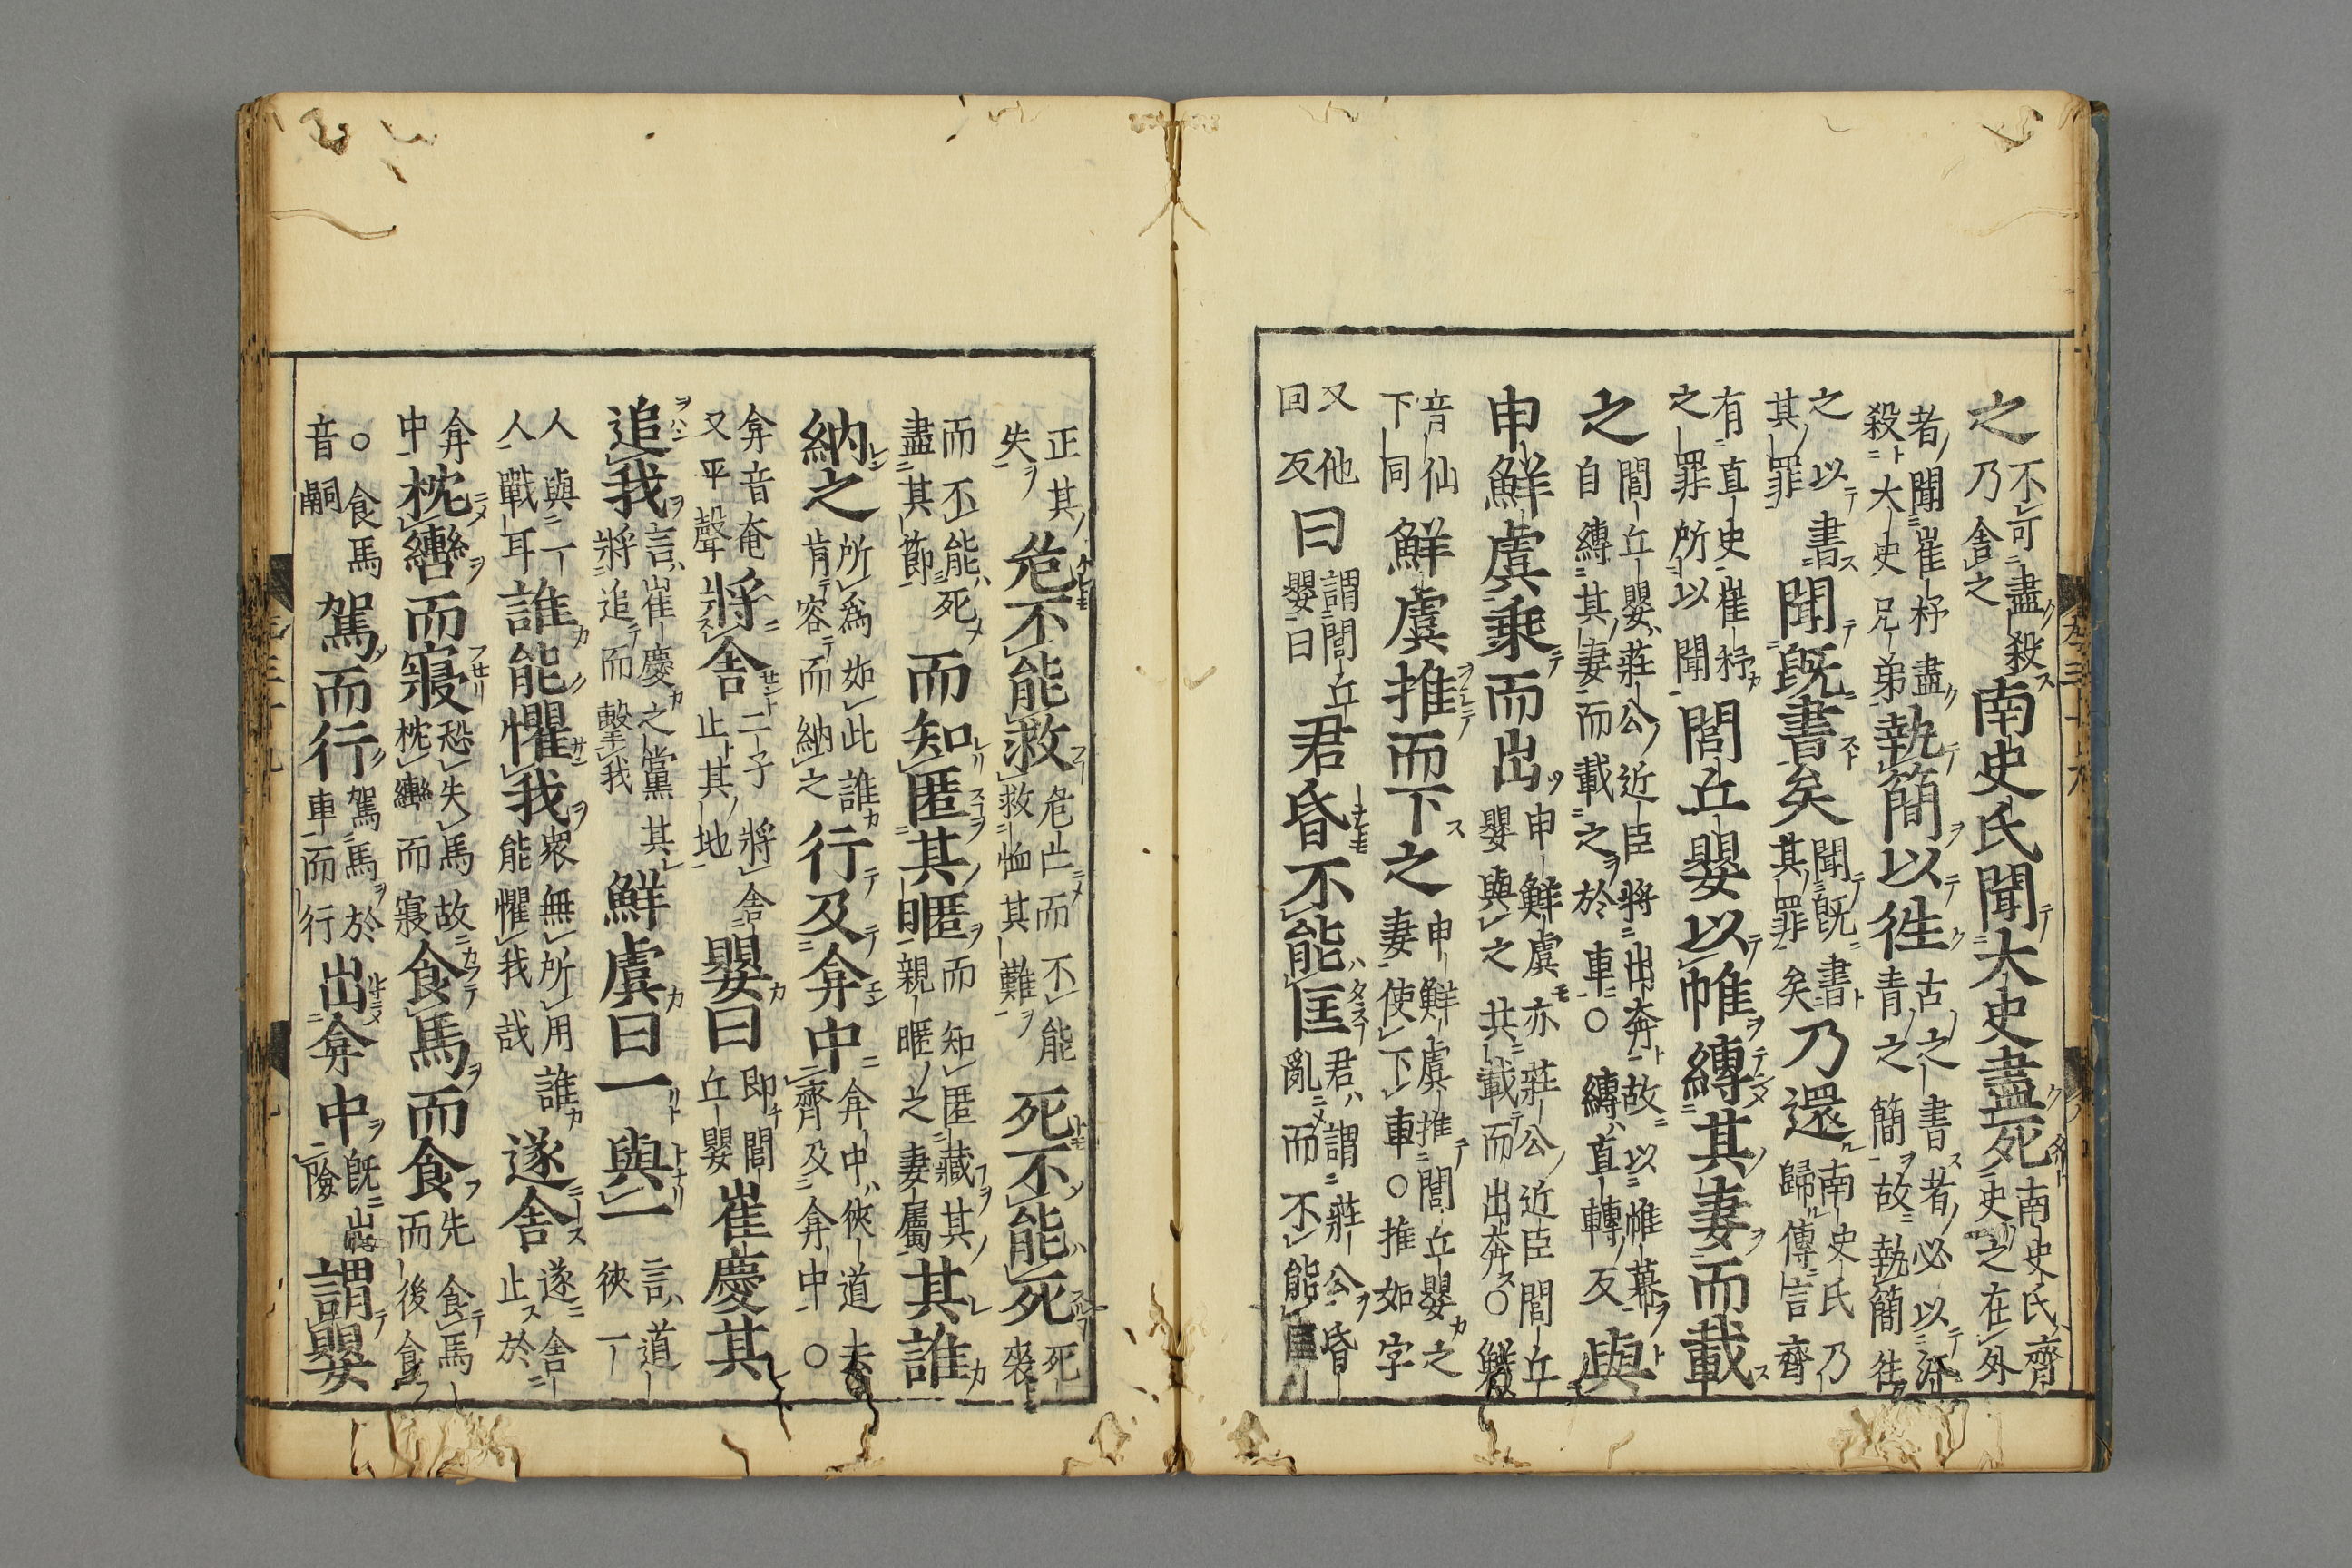 之不可盡殺乃舍之南史氏聞大史盡死南史氏齊史之在外
者聞崔杼盡殺大史兄弟執簡以徃古之書者必以青之簡故執簡徃
之以書其罪聞既書矣聞既書其罪矣乃還南史氏乃歸傳言齊
有直史崔杼之罪所以聞閭丘嬰以帷縛其妻而載
之閭丘嬰莊公近臣將出奔故以帷幕自縛其妻而載之於車○縛直轉反與
申鮮虞乘而出申鮮虞亦莊公近臣閭丘嬰與之共載而出奔○鮮
音仙下同鮮虞推而下之申鮮虞推閭丘嬰之妻使下車○推如字
又他回反曰謂閭丘嬰曰君昏不能匡君謂莊公昏亂而不能
正其失危不能救危亡而不能救恤其難死不能死死
而不能死盡其節而知匿其暱而知匿藏其親暱之妻屬其誰
納之所為如此誰肯容而納之行及弇中弇中狹道齊及弇中○
弇音奄又平聲將舍二子將舍止其地嬰曰即閭丘嬰崔慶其
追我言崔慶之黨其將追而擊我鮮虞曰一與一言道狹一
人與一人戰耳誰能懼我衆無所用誰能懼我哉遂舍遂舍止於
弇中枕轡而寢恐失馬故枕轡而寢食馬而食先食馬而後食
○食馬音嗣駕而行駕馬於車而行出弇中既出險謂嬰